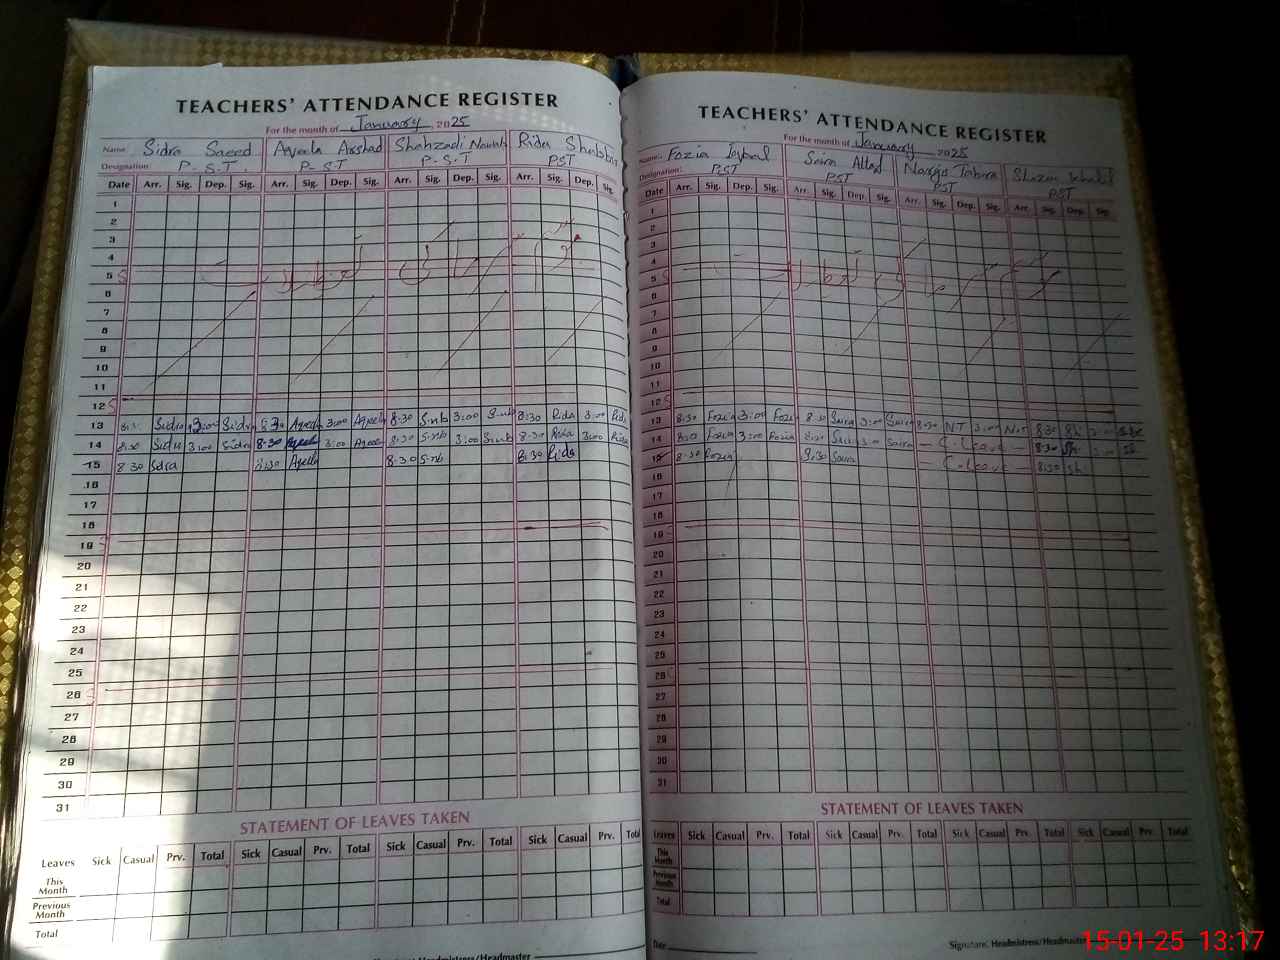 TEACHERS' ATTENDANCE REGISTER
For the month of January 2025
Name Sidra Saeed Aqeela Arshad Shahzadi Nawab Rida Shabbir
Designation: P-S.T. P-S.T P-S.T PST
Date Arr. Sig. Dep. Sig. Arr. Sig. Dep. Sig. Arr. Sig. Dep. Sig. Arr. Sig. Dep. Sig.
1
2
3
4
5 S
6
7
8
9
10
11
12 S
13 8:30 Sidra 3:00 Sidra 8:30 Aqeela 3:00 Aqeela 8:30 S.nb 3:00 S.nb 8:30 Rida 3:00 Rida
14 8:30 Sidra 3:00 Sidra 8:30 Aqeela 3:00 Aqeela 8:30 S.nb 3:00 S.nb 8:30 Rida 3:00 Rida
15 8:30 Sidra 8:30 Aqeela 8:30 S.nb 8:30 Rida
16
17
18
19 S
20
21
22
23
24
25
26 S
27
28
29
30
31
STATEMENT OF LEAVES TAKEN
Leaves Sick Casual Prv. Total Sick Casual Prv. Total Sick Casual Prv. Total Sick Casual Prv. Total
This Month
Previous Month
Total
Headmistress/Headmaster
TEACHERS' ATTENDANCE REGISTER
For the month of January 2025
Name: Fozia Iqbal Saira Altaf Nargis
Designation: PST PST PST PST
Date Arr. Sig. Dep. Sig. Arr. Sig. Dep. Sig. Arr. Sig. Dep. Sig. Arr. Sig. Dep. Sig.
1
2
3
4
5 S
6
7
8
9
10
11
12 S
13 8:30 Fozia 3:00 Fozia 8:30 Saira 3:00 Saira 8:30 NT 3:00 N.T 8:30 Sh 3:00
14 8:30 Fozia 3:00 Fozia 8:30 Saira 3:00 Saira - C-Leave - 8:30 Sh 3:00 Sh
15 8:30 Fozia 8:30 Saira - C-Leave - 8:30 Sh
16
17
18
19
20
21
22
23
24
25
26
27
28
29
30
31
STATEMENT OF LEAVES TAKEN
Leaves Sick Casual Prv. Total Sick Casual Prv. Total Sick Casual Prv. Total Sick Casual Prv. Total
This Month
Previous Month
Total
Date Signature: Headmistress/Headmaster
15-01-25 13:17